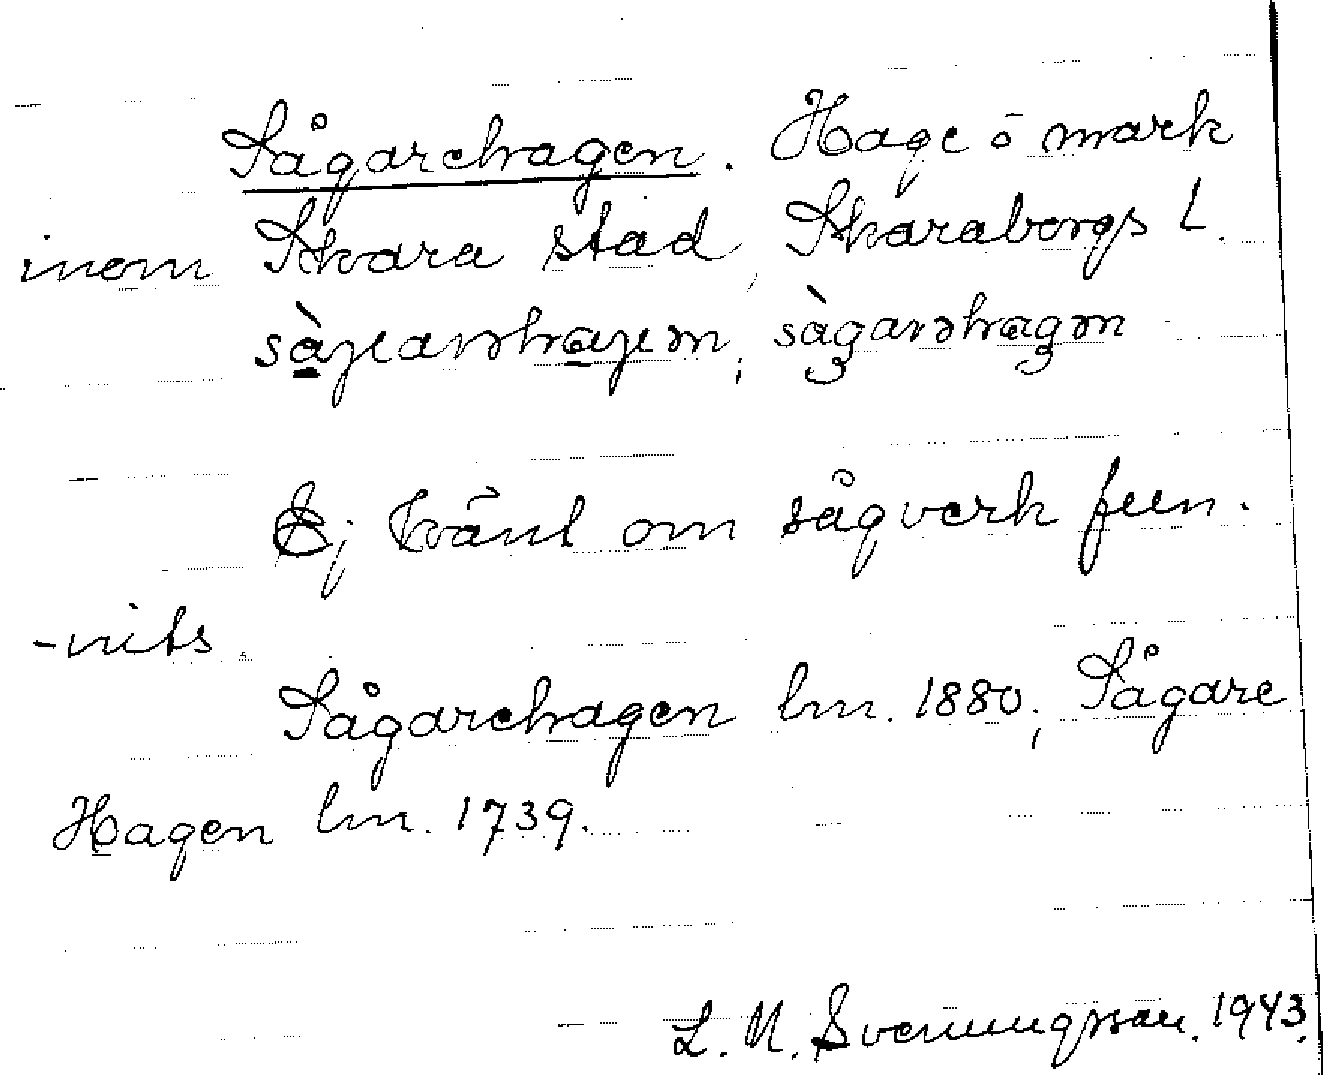 Sågarehagen. Hage o mark
inom Skara stad, Skaraborgs L.
sàgarəhagən, sàgarəhagən
Ej känt om sågverk fun-
-nits.
Sågarehagen lm. 1880; Sågare
Hagen lm. 1739.
L. M. Svenungsson. 1943.